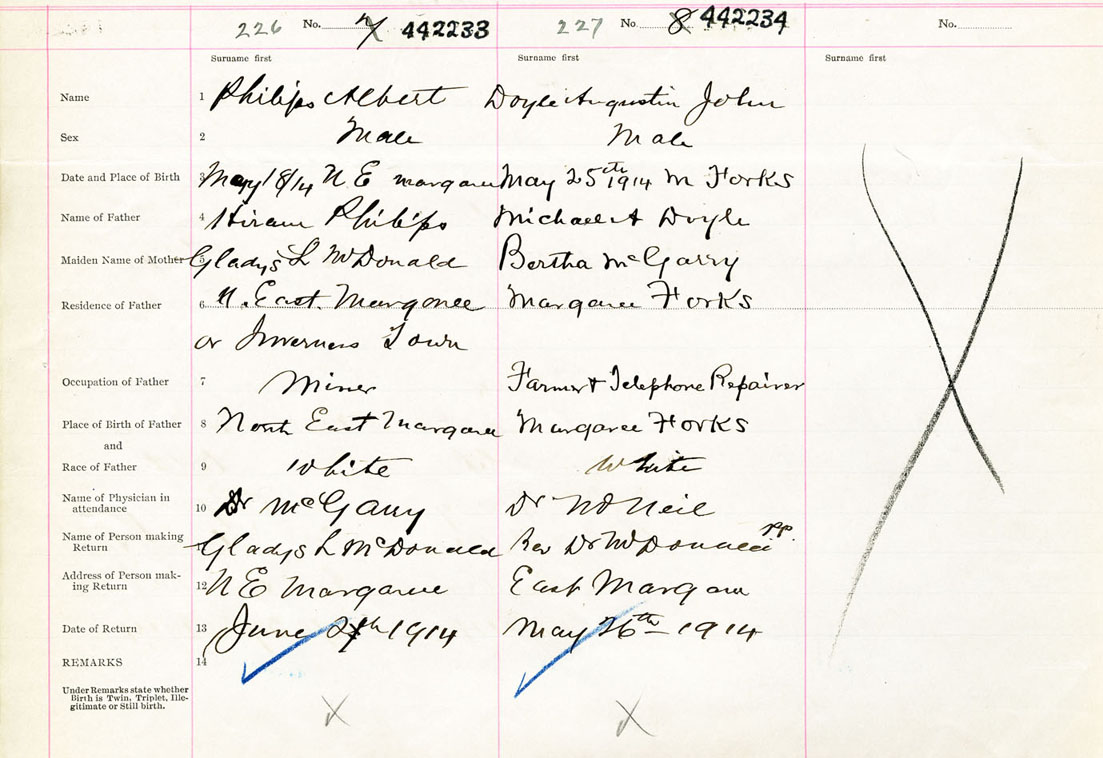 226 No. 7 442233 227 No. 8 442234 No.
Surname first Surname first Surname first
Name 1 Philips Albert Doyle Augustin John
Sex 2 Male Male
Date and Place of Birth 3 May 18/14 N E Margaree May 25th 1914 M Forks
Name of Father 4 Hiram Philips Michael A Doyle
Maiden Name of Mother 5 Gladys L McDonald Bertha McGarry
Residence of Father 6 N. East Margaree Margaree Forks
or Inverness Town
Occupation of Father 7 Miner Farmer & Telephone Repairer
Place of Birth of Father 8 North East Margaree Margaree Forks
and
Race of Father 9 White White
Name of Physician in
attendance 10 Dr McGarry Dr McNeil
Name of Person making
Return Gladys L McDonald Rev Dr McDonald P.P.
Address of Person mak-
ing Return 12 N E Margaree East Margaree
Date of Return 13 June 1914 May 26th 1914
REMARKS 14
Under Remarks state whether
Birth is Twin, Triplet, Ille-
gitimate or Still birth.